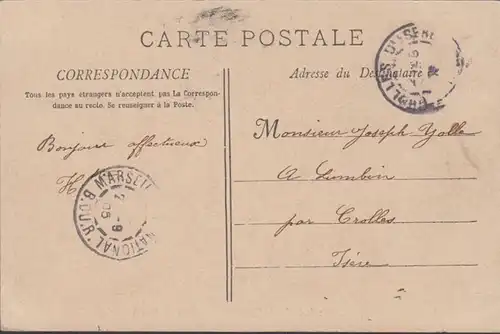 CARTE POSTALE
CORRESPONDANCE
Tous les pays étrangers n'acceptent pas La Correspon-
dance au recto. Se renseigner à la Poste.
Bonjour affectueux
H
MARSEI
NATIONAL
B. DU R.
05
Adresse du Destinataire
Monsieur Joseph Yolle
A Lumbin
par Crolles
Isère